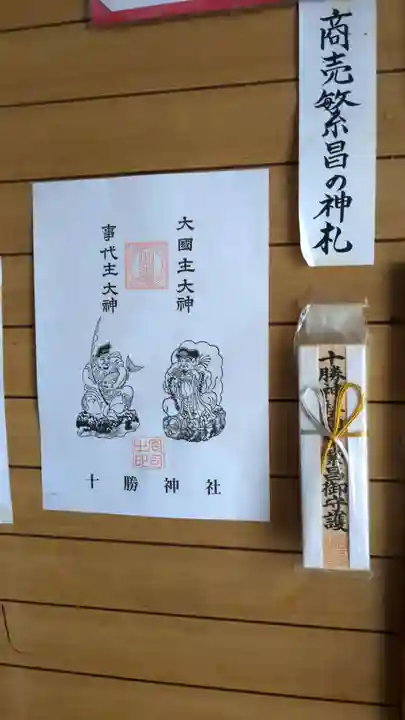 商売繁昌の神札
大國主大神
事代主大神
十勝神社
十勝神
繁昌御守護